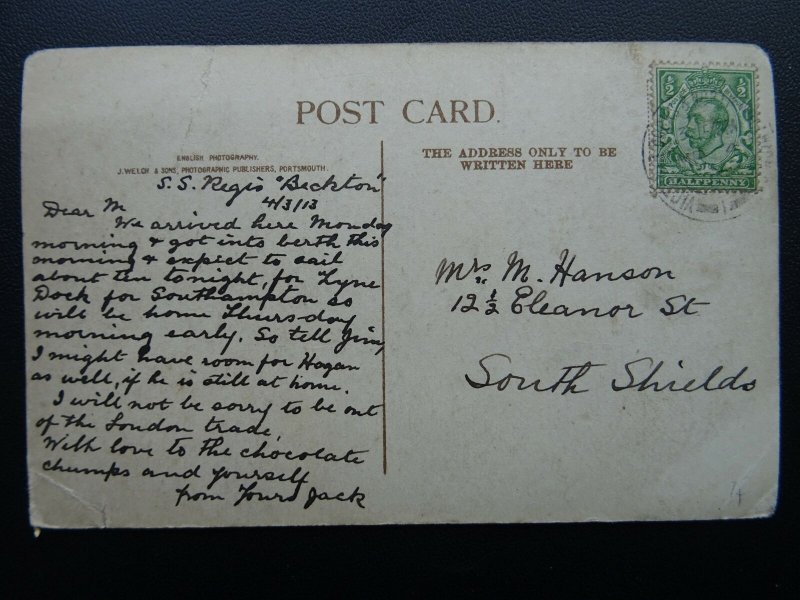 POST CARD.
ENGLISH PHOTOGRAPHY.
J. WELCH & SONS, PHOTOGRAPHIC PUBLISHERS, PORTSMOUTH.
S.S. Regis "Beckton"
4/3/13
Dear M
We arrived here Monday
morning & got into berth this
morning & expect to sail
about ten tonight, for Tyne
Dock for Southampton so
will be home Thursday
morning early. So tell Jim,
I might have room for Hagan
as well, if he is still at home.
I will not be sorry to be out
of the London trade,
With love to the chocolate
chumps and yourself
from Yours Jack
THE ADDRESS ONLY TO BE
WRITTEN HERE
½ ½
HALFPENNY
Mrs M. Hanson
12½ Eleanor St
South Shields